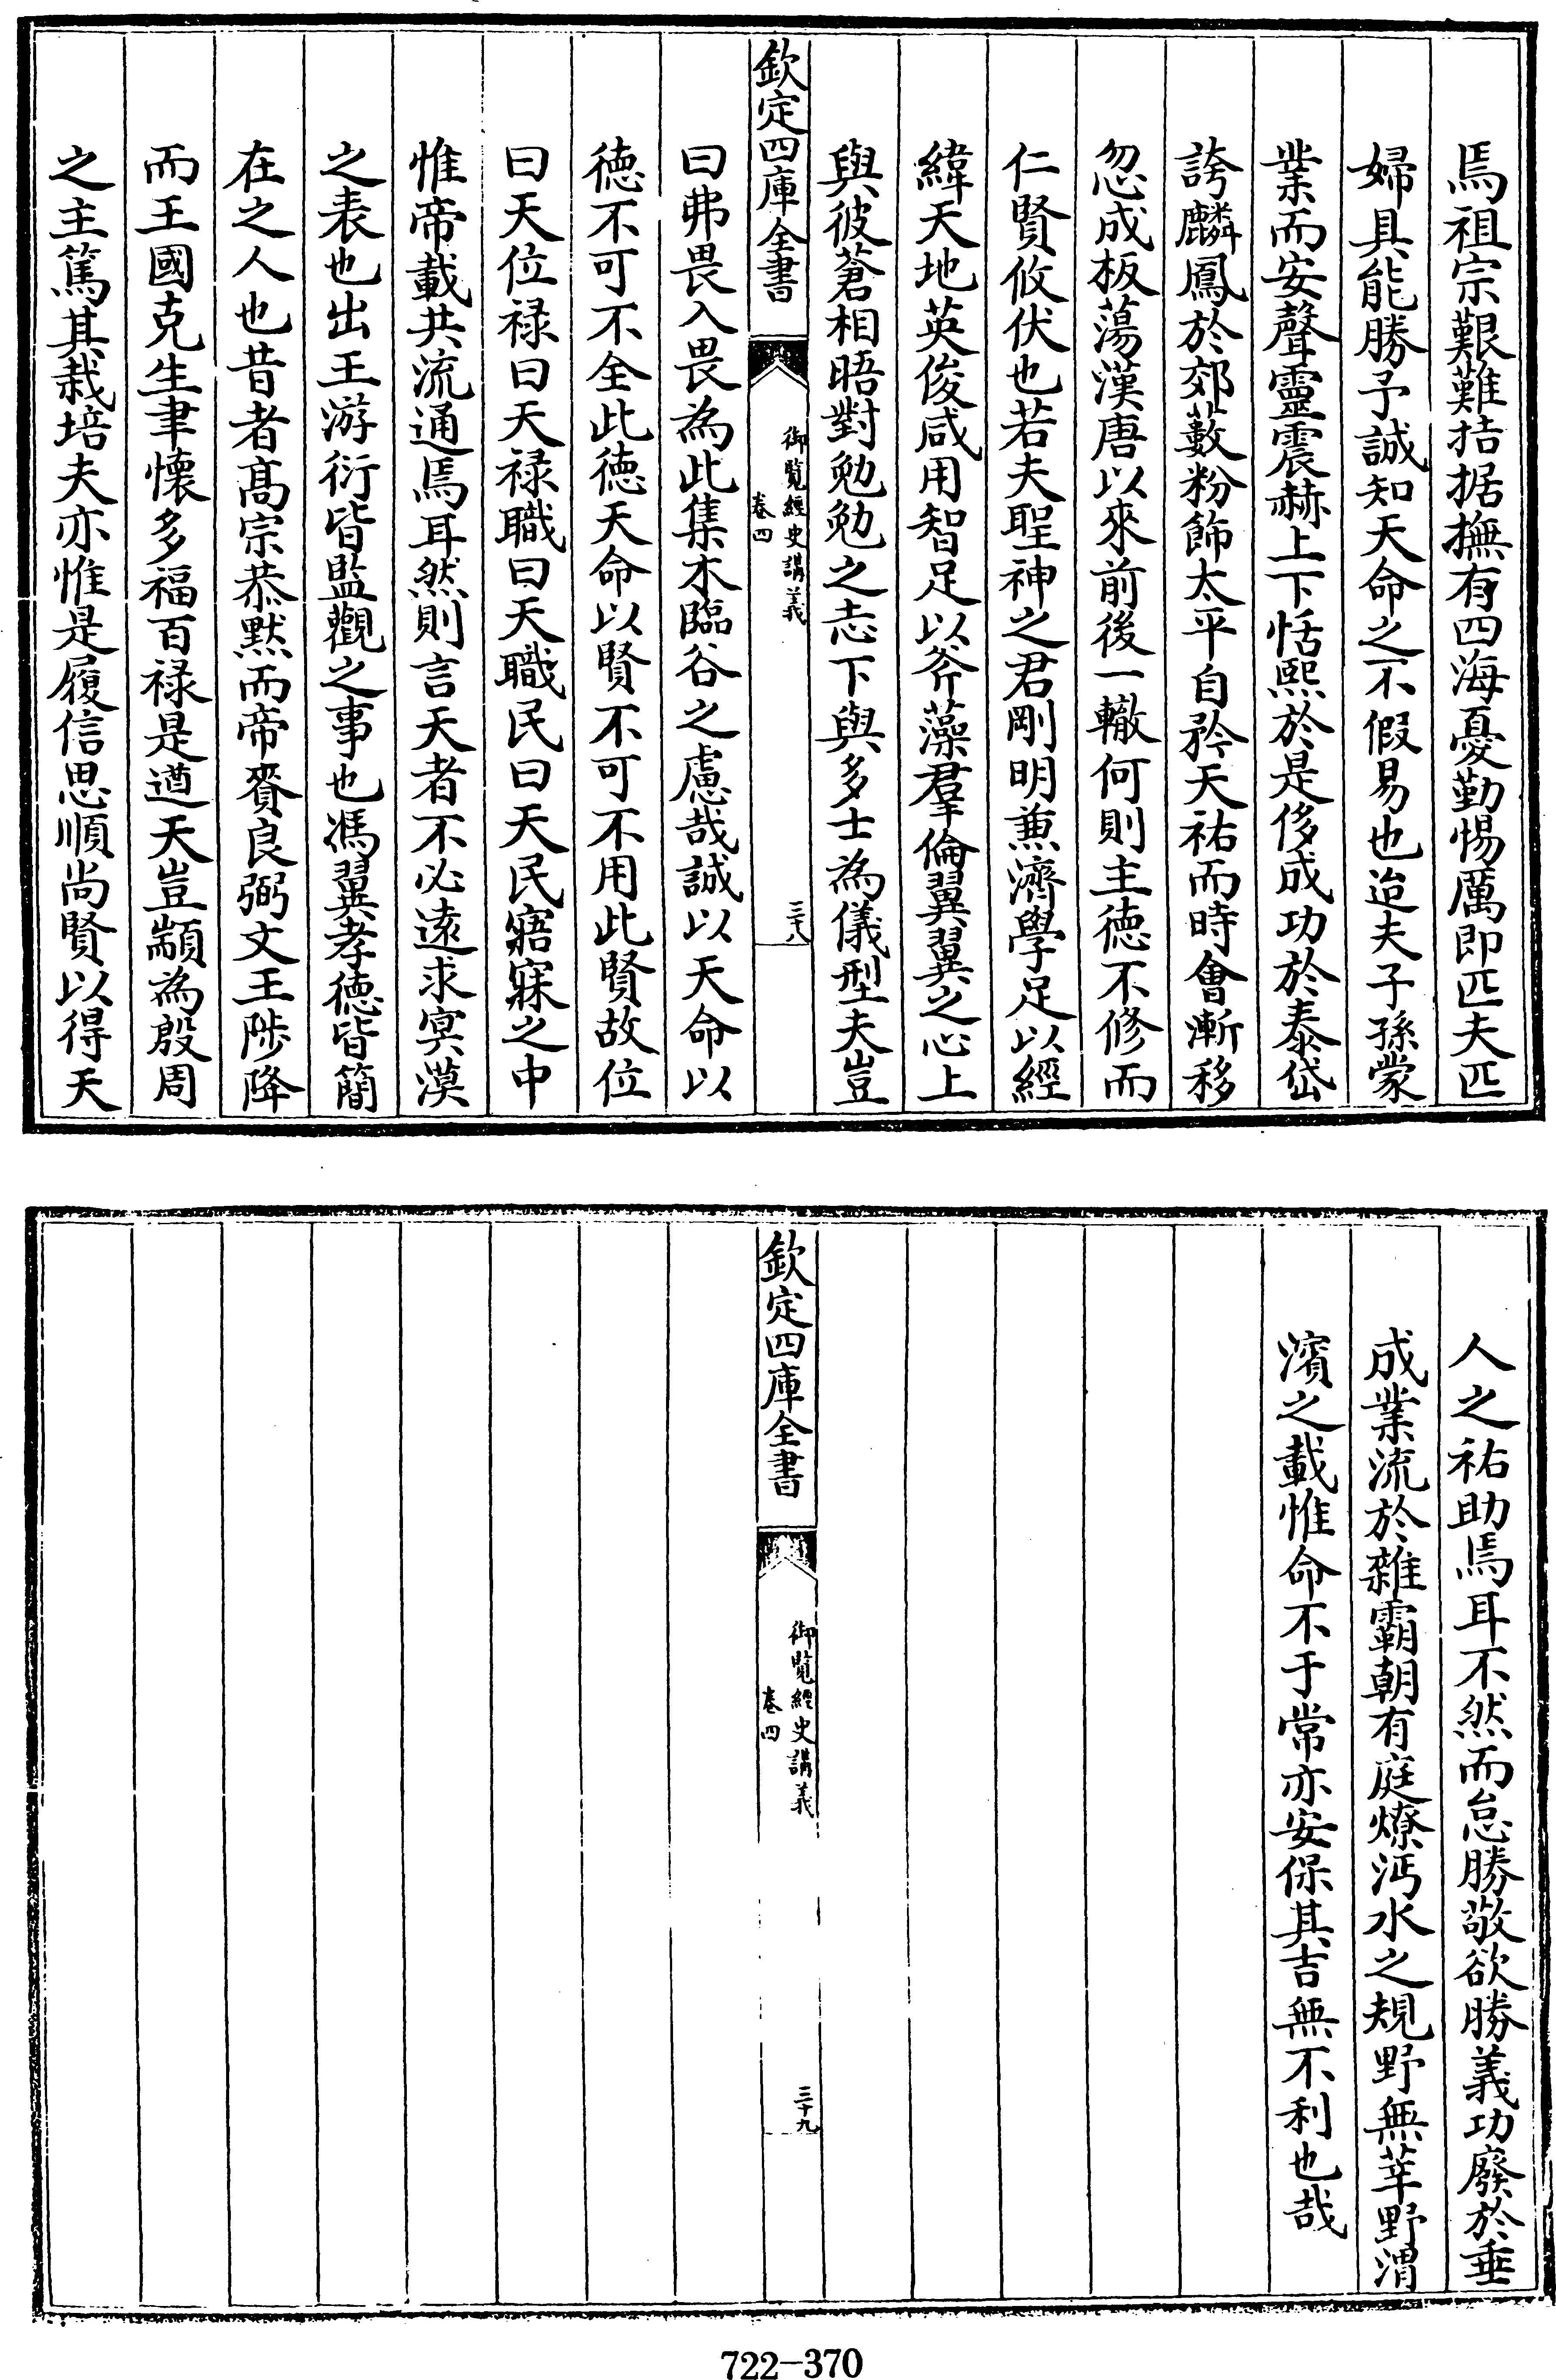 焉祖宗艱難拮据撫有四海憂勤惕厲即匹夫匹
婦具能勝予誠知天命之不假易也迨夫子孫蒙
業而安聲靈震赫上下恬熙於是侈成功於泰岱
誇麟鳳於郊藪粉飾太平自矜天祐而時會漸移
忽成板蕩漢唐以來前後一轍何則主德不修而
仁賢攸伏也若夫聖神之君剛明兼濟學足以經
緯天地英俊咸用智足以斧藻羣倫翼翼之心上
與彼蒼相晤對勉勉之志下與多士為儀型夫豈
欽定四庫全書
御覽經史講義
卷四
三十八
曰弗畏入畏為此集木臨谷之慮哉誠以天命以
德不可不全此德天命以賢不可不用此賢故位
曰天位禄曰天禄職曰天職民曰天民寤寐之中
惟帝載共流通焉耳然則言天者不必遠求冥漠
之表也出王游衍皆監觀之事也馮翼孝德皆簡
在之人也昔者高宗恭默而帝賚良弼文王陟降
而王國克生聿懷多福百禄是遒天豈顓為殷周
之主篤其栽培夫亦惟是履信思順尚賢以得天
人之祐助焉耳不然而怠勝敬欲勝義功廢於垂
成業流於雜霸朝有庭燎沔水之規野無莘野渭
濱之載惟命不于常亦安保其吉無不利也哉
欽定四庫全書
御覽經史講義
卷四
三十九
722-370